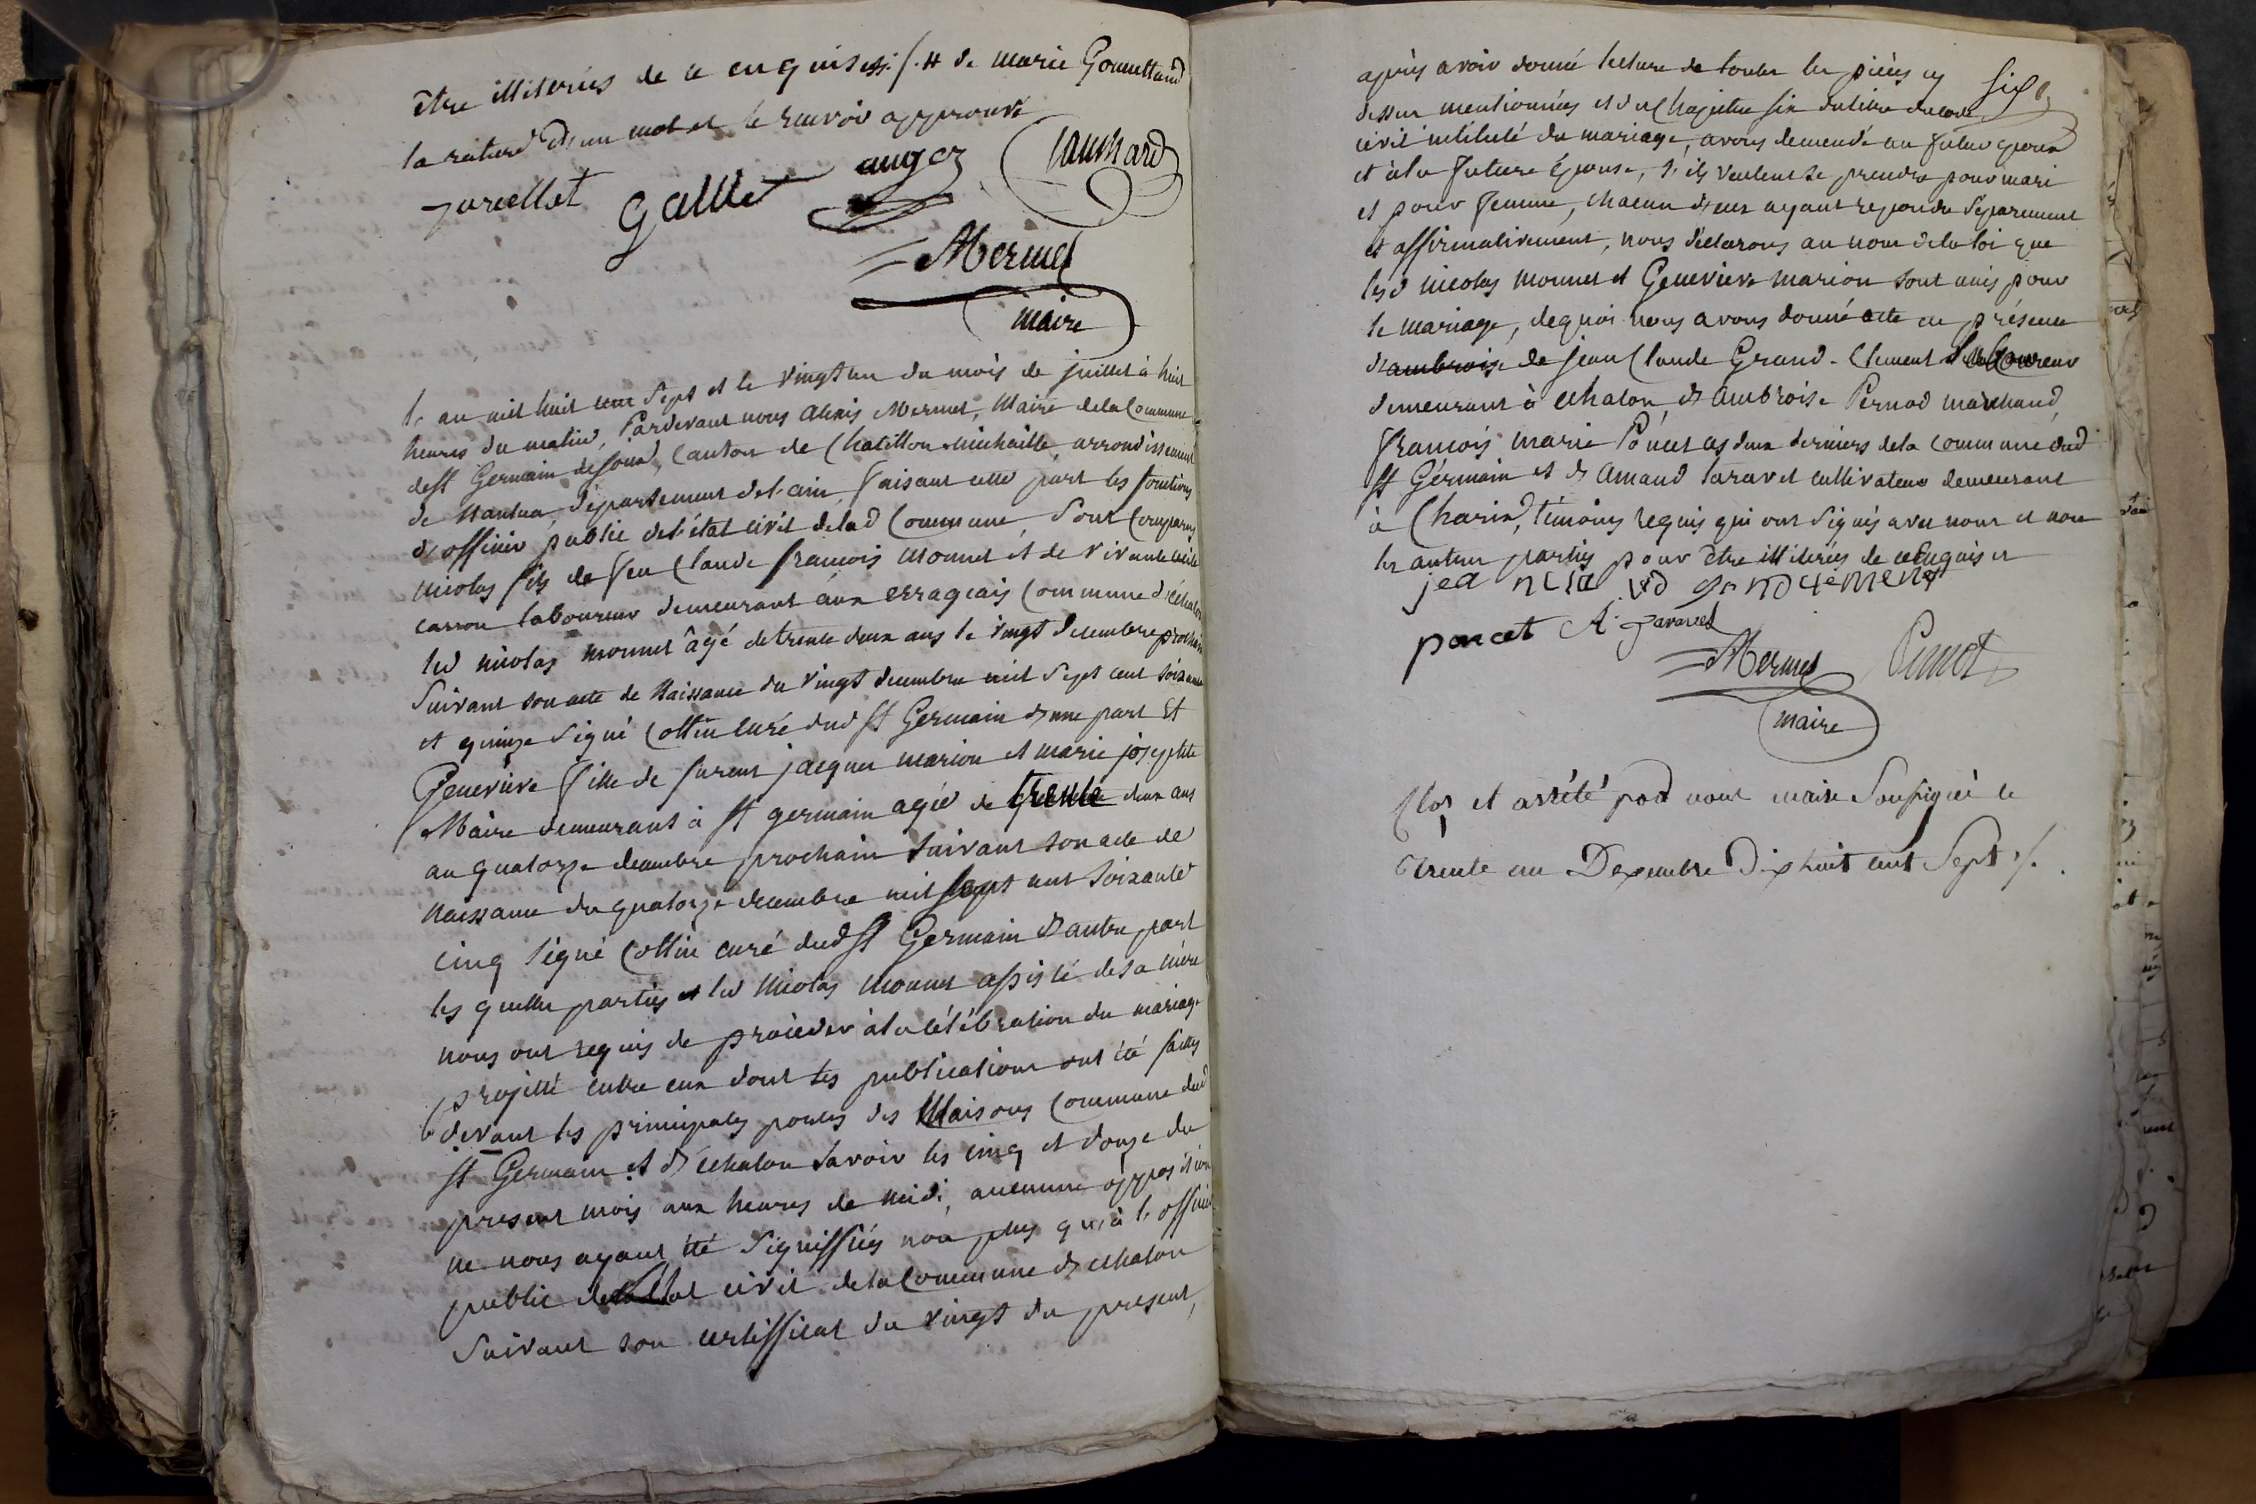 être illiterées de ce enquises ./. # de marie Gonnettand
la rature d'un mot et le renvoi approuvé
jurcellet Gallet auger Tauchard
Mermet
maire
L'an mil huit cent sept et le vingt un du mois de juillet à huit
heures du matin, Pardevant nous alexis Mermet, Maire de la Commune
de St Germain de joux, Canton de Chatillon michaille, arrondissement
de Nantua, département de l'ain, faisant cette part les fonctions
d'officier public de l'état civil de lad Commune, Sont Comparus
nicolas fils de feu Claude françois Monnet et de vivante
carron laboureur demeurant aux Commune d'échalon
led nicolas monnet âgé de trente deux ans le vingt decembre prochain
Suivant son acte de Naissance du vingt decembre mil sept cent soixante
et quinze signé Cottin curé dud St Germain d'une part Et
Genevieve fille de furent jacques marion et marie josephte
Maire demeurant à St germain agée de trente deux ans
au quatorze decembre prochain Suivant son acte de
Naissance du quatorze decembre mil sept cent Soixante
cinq signé Cottin curé dud St Germain d'autre part
les quelles parties et led Nicolas Monnet assisté de sa mère
nous ont requis de proceder à la célébration du mariage
projetté entre eux dont les publications ont été faites
devant les principales portes des Maisons Commune dud
St Germain et d'échalon Savoir les cinq et douze du
present mois aux heures de midi, aucunne opposition
ne nous ayant été signiffiés non plus qu'à l'officier
public de l'état civil de la Commune d'echalon
Suivant son certifficat du vingt du present,
après avoir donné lecture de toutes les pièces cy
dessus mentionnées et du Chapitre six du titre du code
civil intitulé du mariage, avons demandé au futur époux
et à la future Épouse, s'ils veulent se prendre pour mari
et pour femme, chacun d'eux ayant repondu séparement
et affirmativement, nous déclarons au nom de la loi que
lesd nicolas monnet et Genevieve marion sont unis pour
le mariage, de quoi nous avons donné acte en présence
d'ambroise de jean Claude Grand-Clement
demeurant à échalon, d'ambroise Pernod marchand,
françois marie Poncet ces deux derniers de la commune dud
St Germain et d'amand taravet cultivateur demeurant
à Charix, témoins requis qui ont signés avec nous et non
les autres parties pour être illiterées de ce enquises
poncet A. taravel
Mermet Pernot
maire
Clos et arrêté par nous maire Soussigné le
trente un Decembre dix huit cent Sept ./.